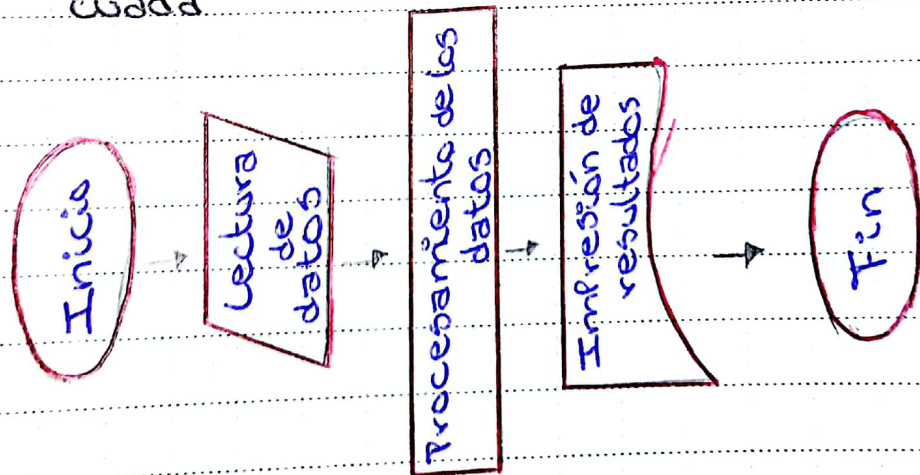 Inicio
Lectura
de
datos
Procesamiento de los
datos
Impresión de
resultados
Fin